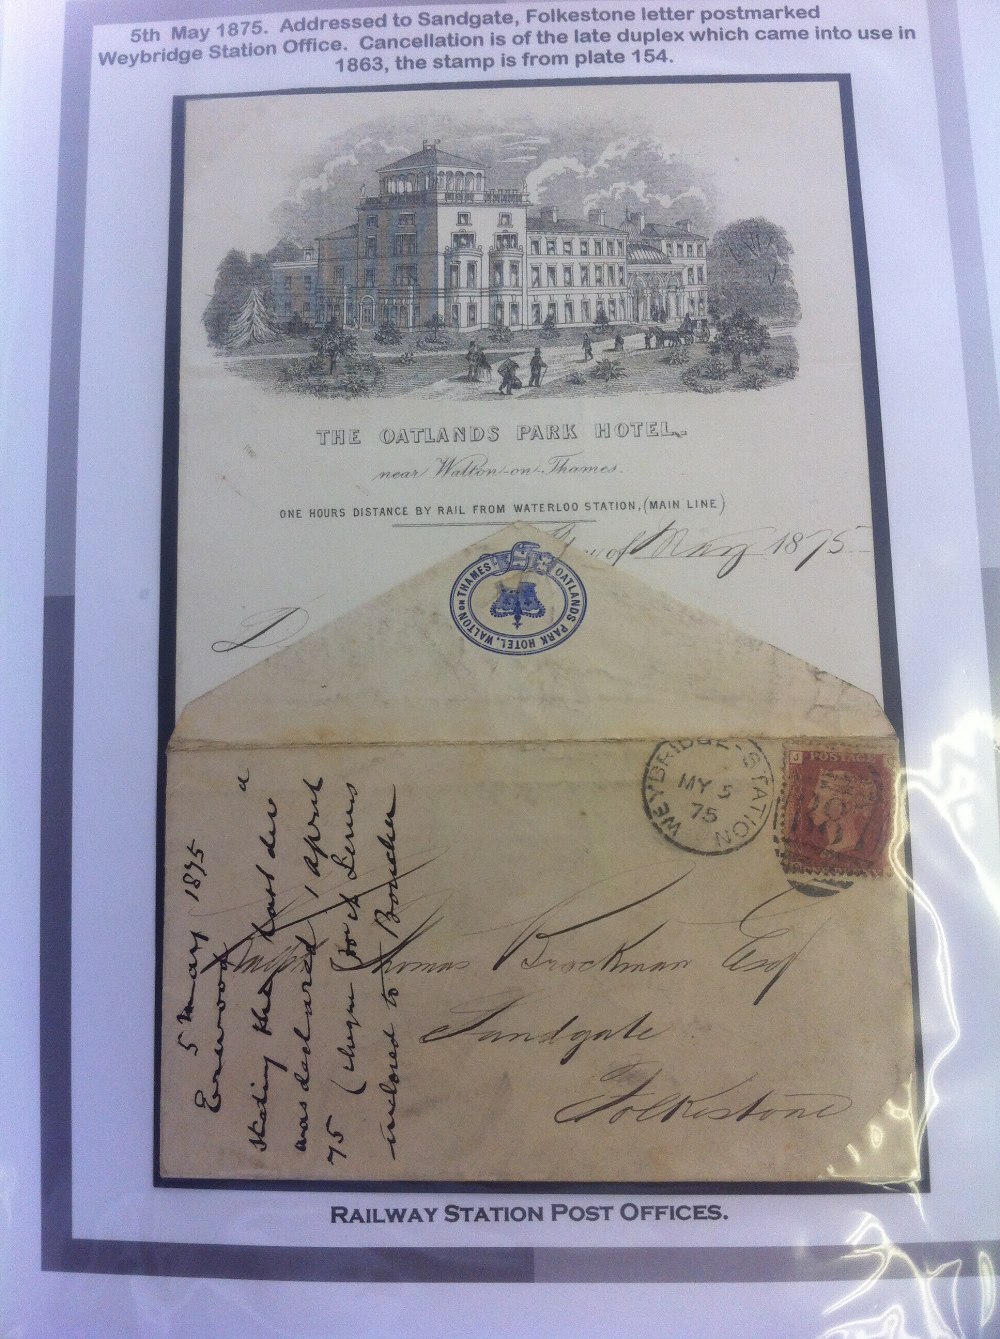 5th May 1875. Addressed to Sandgate, Folkestone letter postmarked
Weybridge Station Office. Cancellation is of the late duplex which came into use in
1863, the stamp is from plate 154.
THE OATLANDS PARK HOTEL.
near Walton-on-Thames.
ONE HOURS DISTANCE BY RAIL FROM WATERLOO STATION, (MAIN LINE)
of May 1875
D
OATLANDS PARK HOTEL, WALTON ON THAMES
WEYBRIDGE-STATION
MY 5
75
J POSTAGE
Thomas Brockman Esq
Sandgate
Folkestone
5 May 1875
stating the last
was declared 1 April
75 (cheque for
enclosed to Boucher
RAILWAY STATION POST OFFICES.